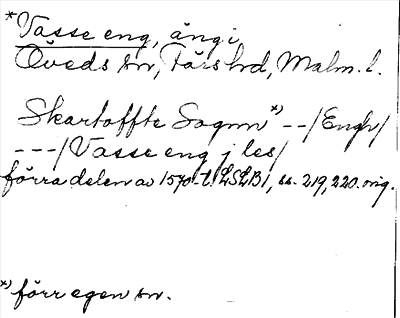 *Vasse eng, äng i
Öveds sn, Färs hd, Malm. l.
Skartoffte Sognn *) --/Engh/
---/Vasse eng j les/
förra delen av 1570-t. LSLB1, ss. 219, 220. orig.
*) förr egen sn.